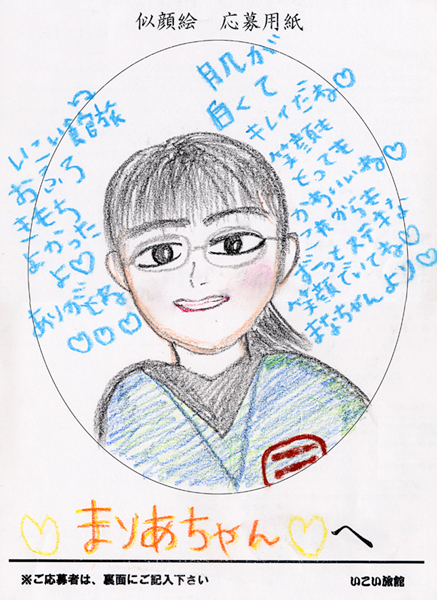 似顔絵 応募用紙
肌が
白くて
キレイだね♡
笑顔も
とっても
かわいいね♡
これからも
ずーっとステキな
笑顔でいてね♡
まなちゃんより♡
いこい旅館ね
おふろ
きもち
よかった
よ♡
ありがとね
♡♡♡
♡まりあちゃん♡へ
※ご応募者は、裏面にご記入下さい
いこい旅館